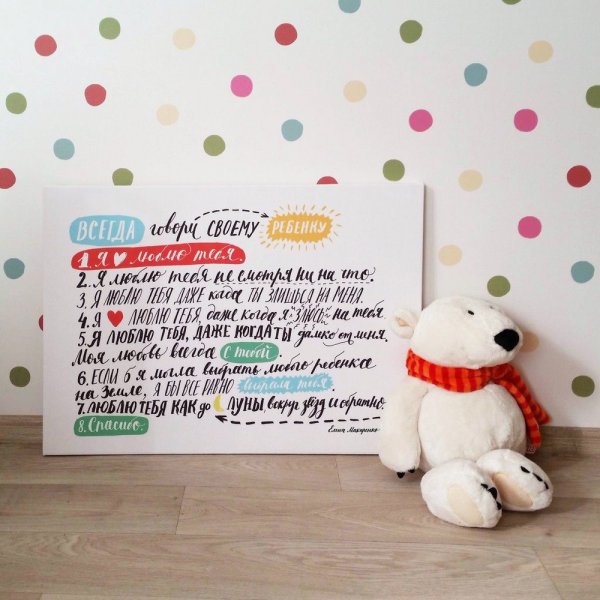 ВСЕГДА говори СВОЕМУ РЕБЕНКУ
1. Я ❤ люблю тебя.
2. Я люблю тебя не смотря ни на что.
3. Я ЛЮБЛЮ ТЕБЯ ДАЖЕ когда ТЫ ЗЛИШЬСЯ НА МЕНЯ.
4. Я ❤ ЛЮБЛЮ ТЕБЯ, даже когда я ЗЛЮСЬ на тебя
5. Я ЛЮБЛЮ ТЕБЯ, ДАЖЕ КОГДА ТЫ далеко от меня.
Моя любовь всегда с тобой.
6. ЕСЛИ б я могла выбрать любого ребенка
на Земле, Я БЫ ВСЕ РАВНО выбрала тебя.
7. ЛЮБЛЮ ТЕБЯ КАК до ЛУНЫ, вокруг звёзд и обратно.
8. Спасибо.
Елена Макаренко